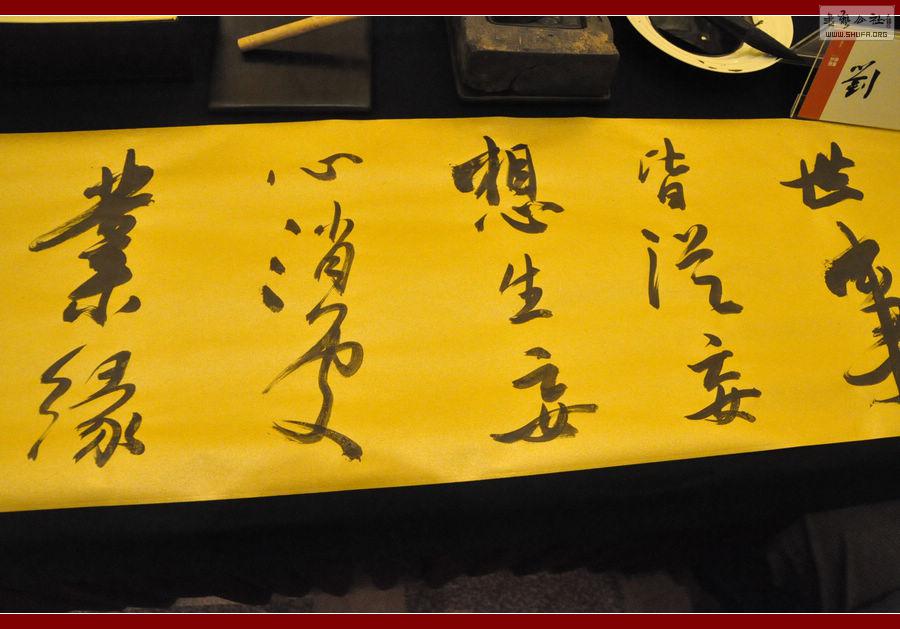 世事
皆從妄
想生妄
心消處
業緣
書藝公社
WWW.SHUFA.ORG